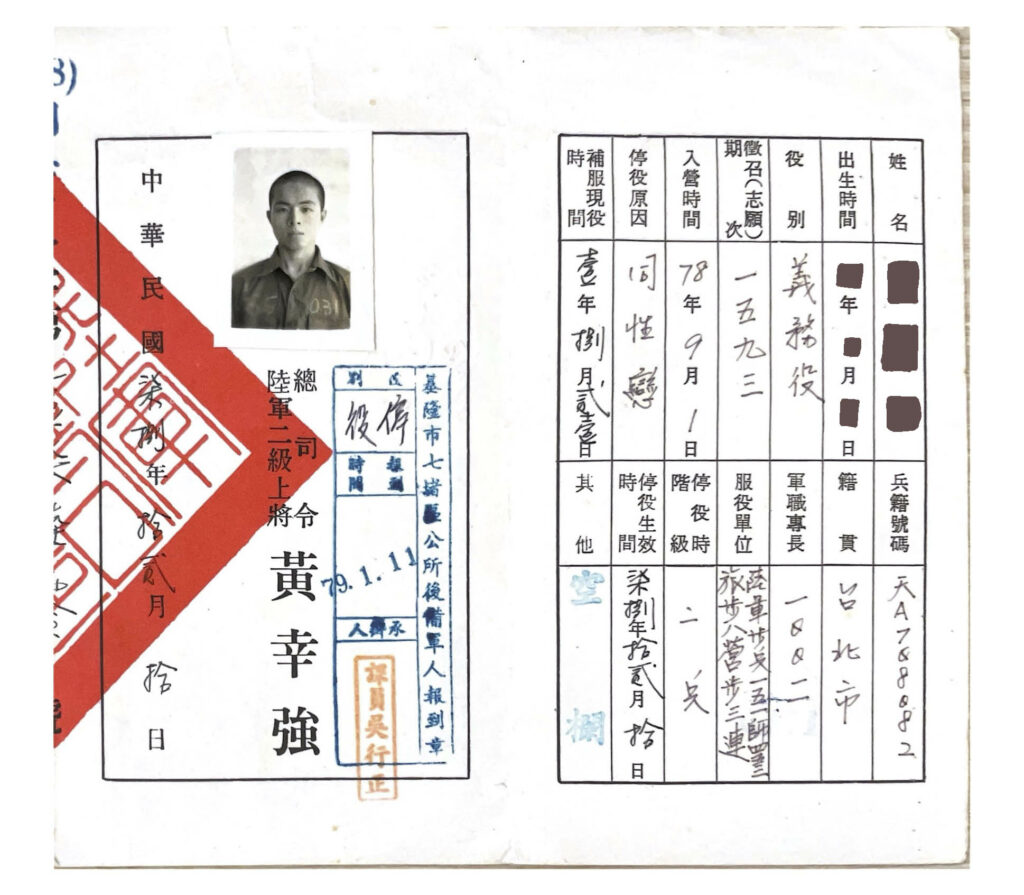 姓名
出生時間 年 月 日
役別 義務役
徵召(志願)期次 一五九三
入營時間 78年9月1日
停役原因 同性戀
補服現役時間 壹年捌月貳壹日
兵籍號碼
籍貫 台北市
軍職專長
服役單位
停役時階級 二兵
停役生效時間 柒捌年拾貳月拾日
其他 空欄
基隆市七堵區公所後備軍人報到章
區別 停役
報到時間 79.1.11
承辦人
課員吳行正
總司令
陸軍二級上將
黃幸強
031
中華民國柒捌年拾貳月拾日